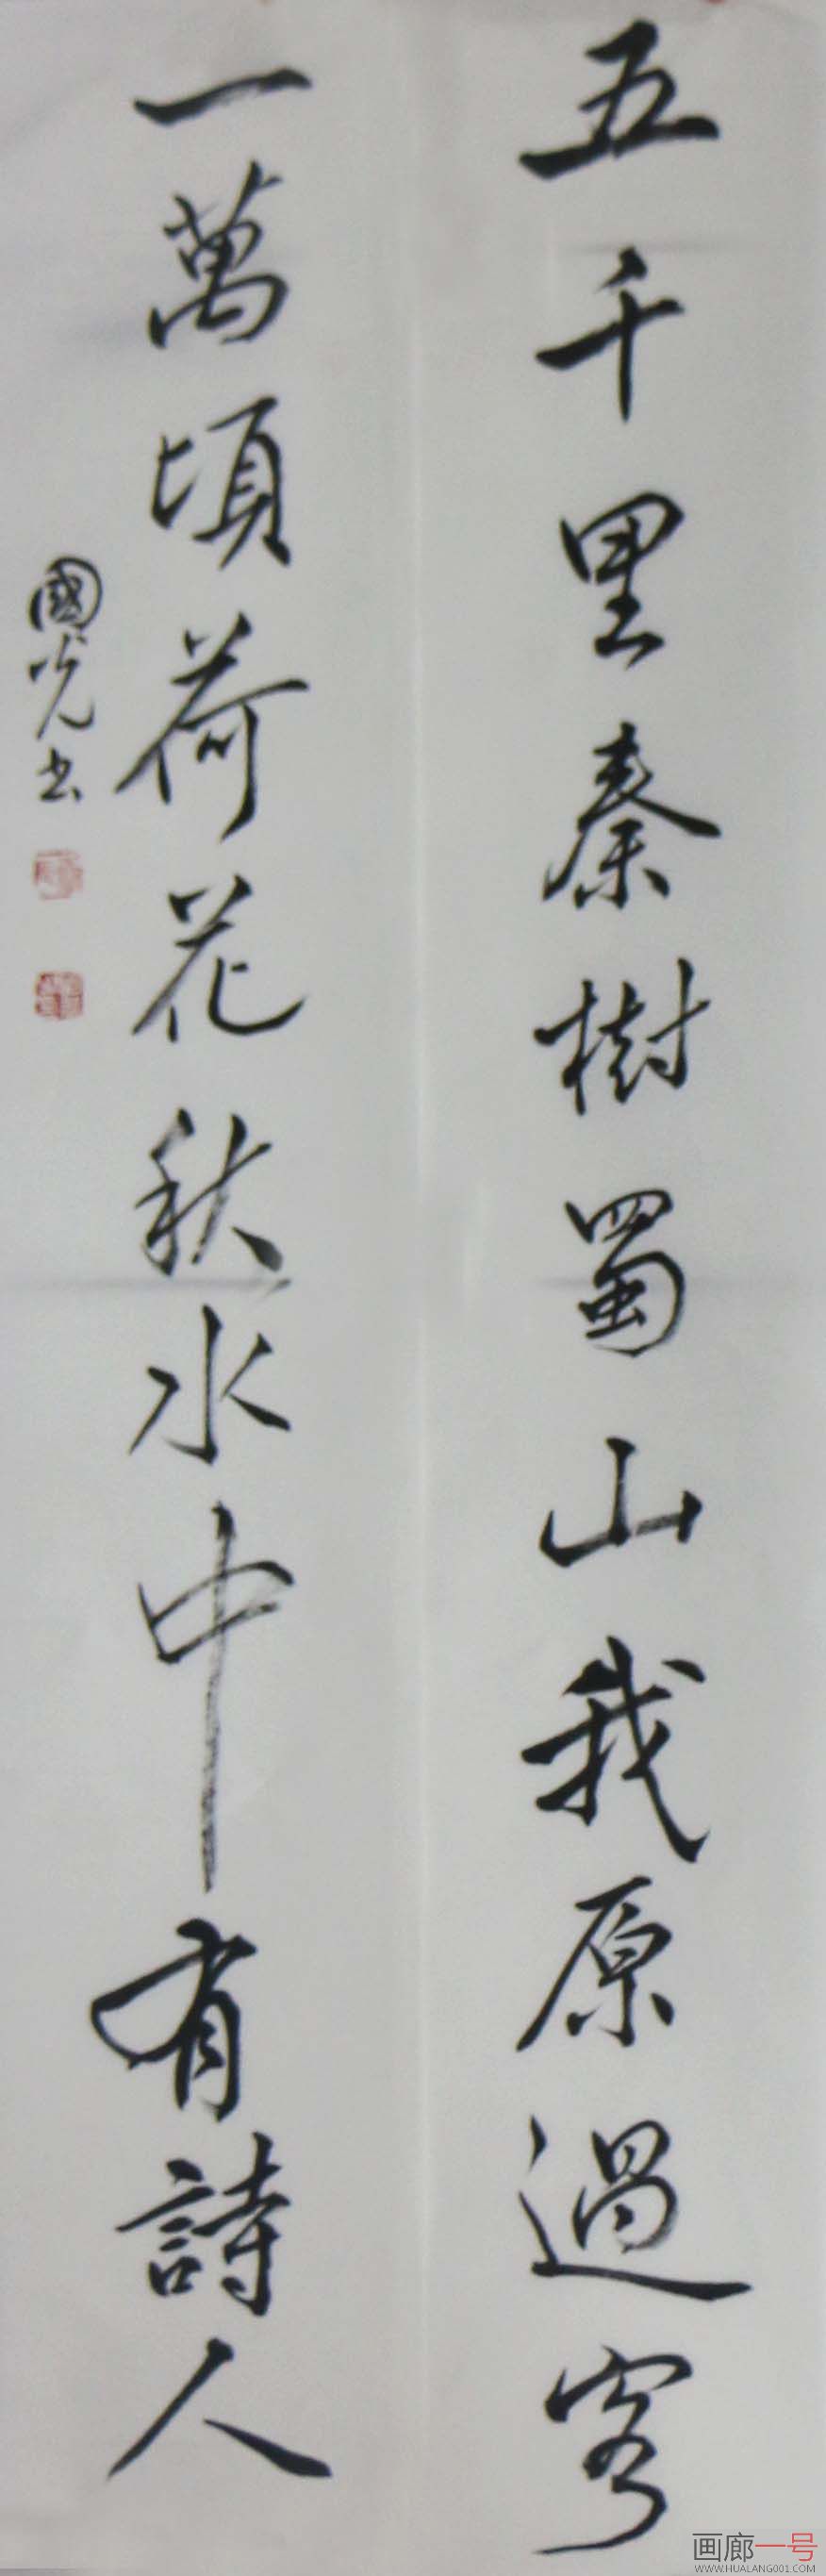 五千里秦樹蜀山我原過客
一萬頃荷花秋水中有詩人
國光书
画廊一号
WWW.HUALANG001.COM